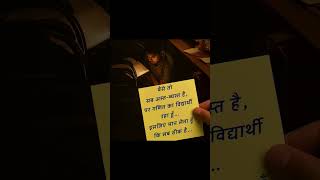 वैसे तो
सब अस्त-व्यस्त है,
पर गणित का विद्यार्थी
रहा हूँ...
इसलिए मान लेता हूँ
कि सब ठीक है...
स्त है,
विद्यार्थी